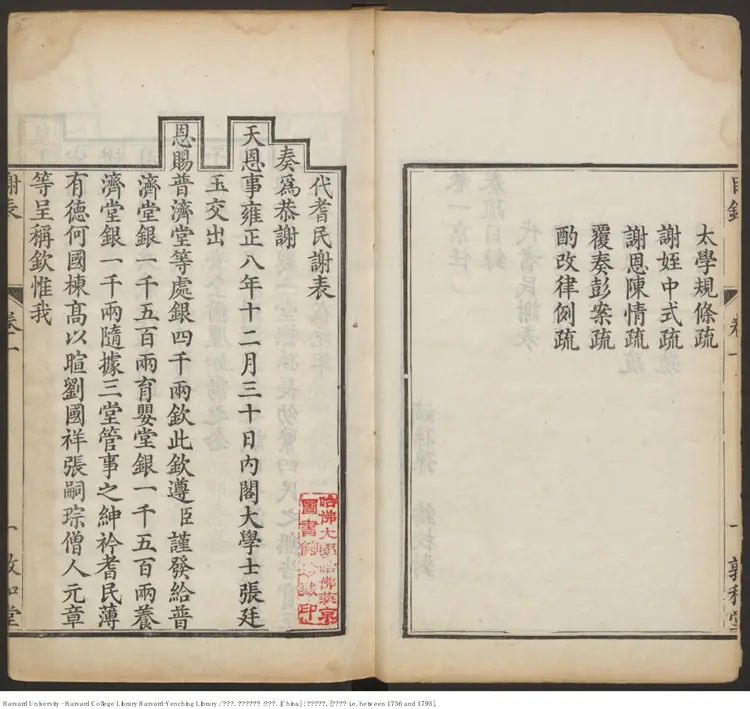 太學規條疏
謝姪中式疏
謝恩陳情疏
覆奏彭案疏
酌改律例疏
目錄
卷一
敦和堂
代耆民謝表
奏爲恭謝
天恩事雍正八年十二月三十日內閣大學士張廷
玉交出
恩賜普濟堂等處銀四千兩欽此欽遵臣謹發給普
濟堂銀一千五百兩育嬰堂銀一千五百兩養
濟堂銀一千兩隨據三堂管事之紳衿耆民薄
有德何國棟高以暄劉國祥張嗣琮僧人元章
等呈稱欽惟我
謝表
卷一
一
敦和堂
哈佛大學哈佛燕京
圖書館珍藏印
Harvard University - Harvard College Library Harvard-Yenching Library / ???. ?????? :???. [China] : ?????, [???? i.e. between 1736 and 1795].